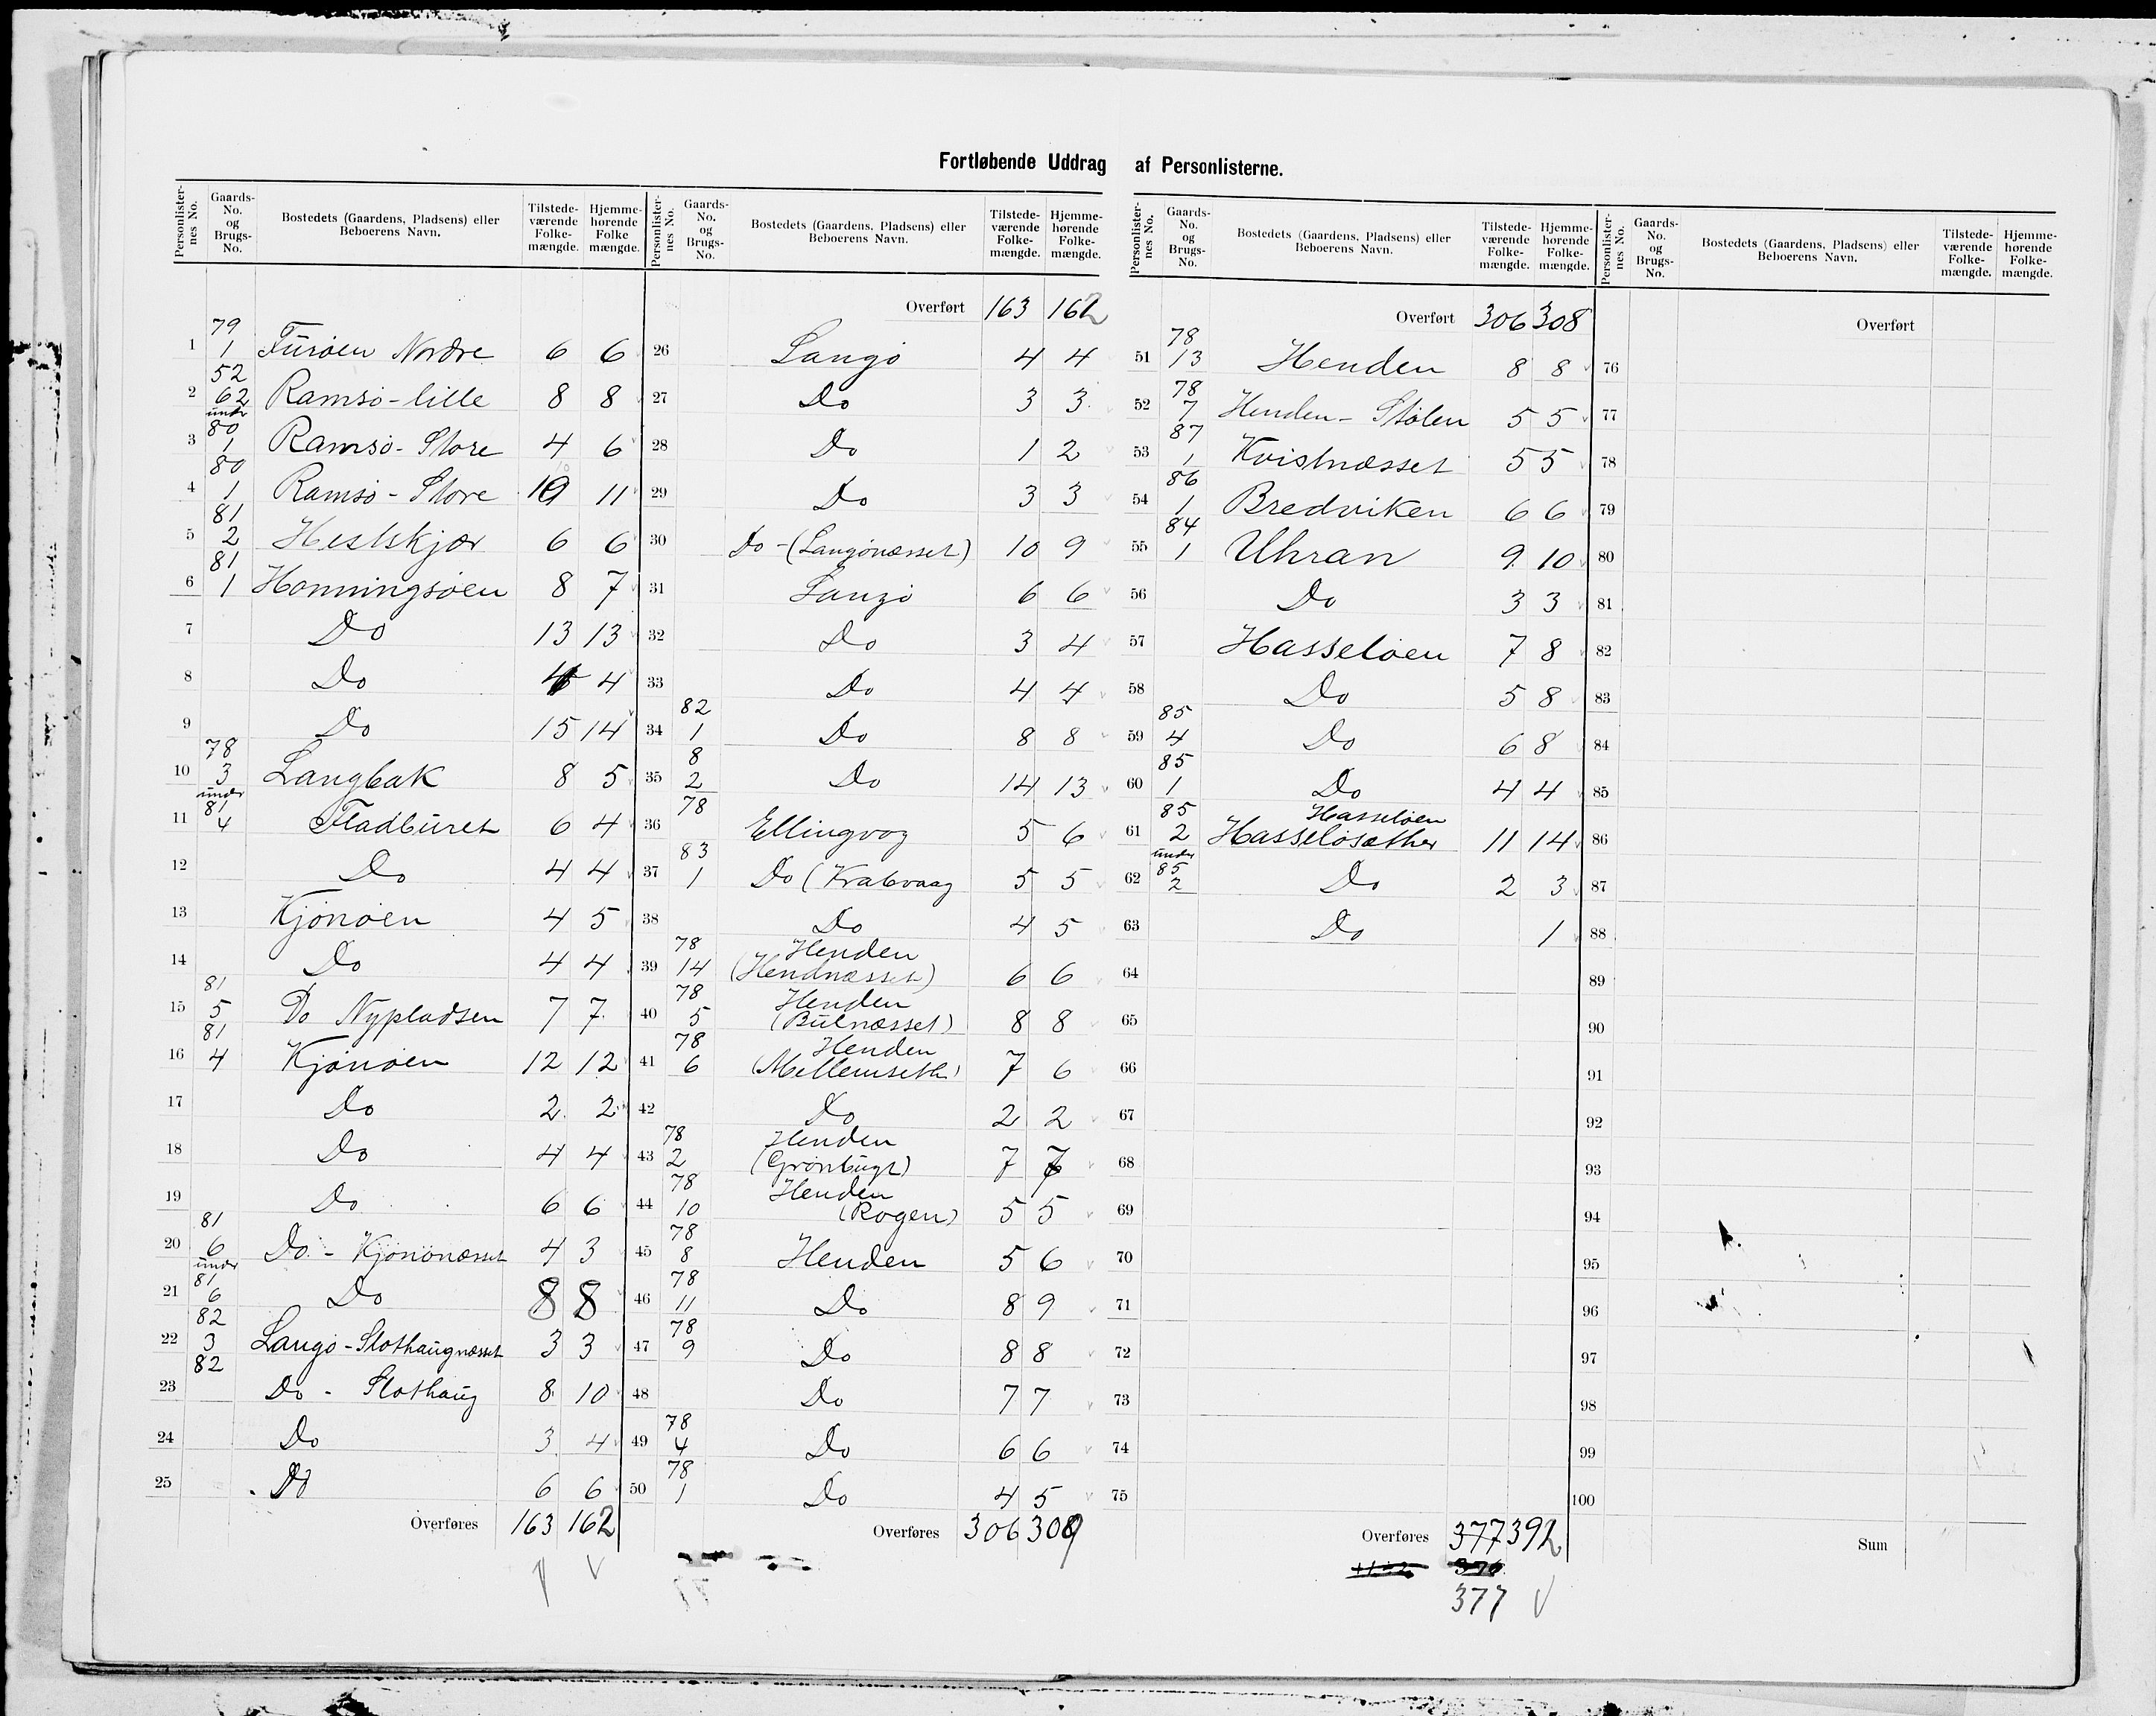 Fortløbende Uddrag af Personlisterne.
Personlisternes No. | Gaards-No. og Brugs-No. | Bostedets (Gaardens, Pladsens) eller Beboerens Navn. | Tilstedeværende Folkemængde. | Hjemmehørende Folkemængde.
1 79/1 Fürøen Nordre 6 6
2 52/62 Ramsø-lille 8 8
3 under 80/1 Ramsø-Store 4 6
4 80/1 Ramsø-Store 10 11
5 81/2 Hestskjær 6 6
6 81/1 Honningsøen 8 7
7 Do 13 13
8 Do 4 4
9 Do 15 14
10 78/3 Langbak 8 5
11 under 81/4 Fladbüret 6 4
12 Do 4 4
13 Kjønøen 4 5
14 Do 4 4
15 81/5 Do Nypladsen 7 7
16 81/4 Kjønøen 12 12
17 Do 2 2
18 Do 4 4
19 Do 6 6
20 81/6 Do - Kjønønæsset 4 3
21 under 81/6 Do 8 8
22 82/3 Langø-Slothaugnæsset 3 3
23 82 Do - Slothaug 8 10
24 Do 3 4
25 Do 6 6
Overføres 163 162
Overført 163 162
26 Langø 4 4
27 Do 3 3
28 Do 1 2
29 Do 3 3
30 Do-(Langønæsset) 10 9
31 Langø 6 6
32 Do 3 4
33 Do 4 4
34 82/1 Do 8 8
35 8/2 Do 14 13
36 78 Ellingvog 5 6
37 83/1 Do (Krabvaag 5 5
38 Do 4 5
39 78/14 Henden (Hendnæsset) 6 6
40 78/5 Henden (Bülnæsset) 8 8
41 78/6 Henden (Mellemseth) 7 6
42 Do 2 2
43 78/2 Henden (Grønbugt) 7 7
44 78/10 Henden (Rogen) 5 5
45 78/8 Henden 5 6
46 78/11 Do 8 9
47 78/9 Do 8 8
48 Do 7 7
49 78/4 Do 6 6
50 78/1 Do 4 5
Overføres 306 309
Overført 306 308
51 78/13 Henden 8 8
52 78/7 Henden-Stølen 5 5
53 87/1 Kvistnæsset 5 5
54 86/1 Bredviken 6 6
55 84/1 Uhran 9 10
56 Do 3 3
57 Hasseløen 7 8
58 Do 5 8
59 85/4 Do 6 8
60 85/1 Do 4 4
61 85/2 Hasseløen Hasseløsæther 11 14
62 under 85/2 Do 2 3
63 Do 1
64
65
66
67
68
69
70
71
72
73
74
75
Overføres 377 392
377
Overført
76
77
78
79
80
81
82
83
84
85
86
87
88
89
90
91
92
93
94
95
96
97
98
99
100
Sum